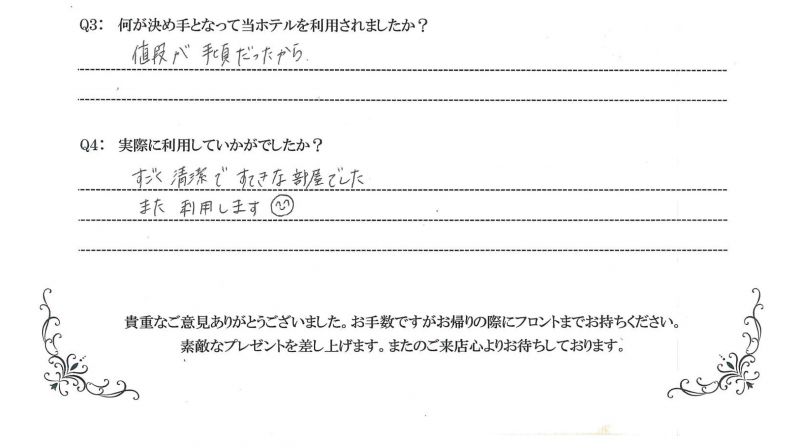 Q3: 何が決め手となって当ホテルを利用されましたか？
値段が手頃だったから
Q4: 実際に利用していかがでしたか？
すごく清潔ですてきな部屋でした
また利用します
貴重なご意見ありがとうございました。お手数ですがお帰りの際にフロントまでお持ちください。
素敵なプレゼントを差し上げます。またのご来店心よりお待ちしております。